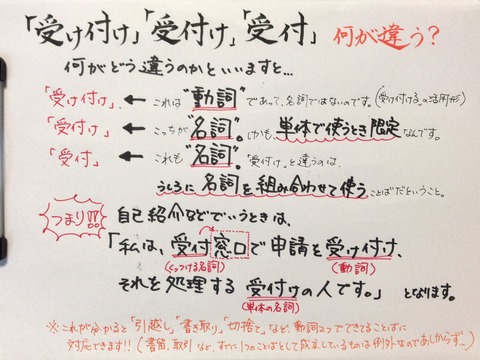 「受け付け」「受付け」「受付」 何が違う?
何がどう違うのかといいますと…
「受け付け」 ← これは"動詞"であって、名詞ではないのです。(「受け付ける」の活用形)
「受付け」 ← こっちが"名詞"。しかも、単体で使うとき限定なんです。
「受付」 ← これも"名詞"。「受付け」と違うのは、
うしろに名詞を組み合わせて使うことばだということ。
つまり!! 自己紹介などでいうときは、
「私は、受付窓口で申請を受け付け、
(くっつける名詞) (動詞)
それを処理する受付けの人です。」 となります。
(単体の名詞)
※これが分かると「引越し」「書き取り」「切捨て」など、動詞2つでできてることばに
対応できます!!(書留、取引など、すでに1つのことばとして成立しているものは例外なのであしからず…~)